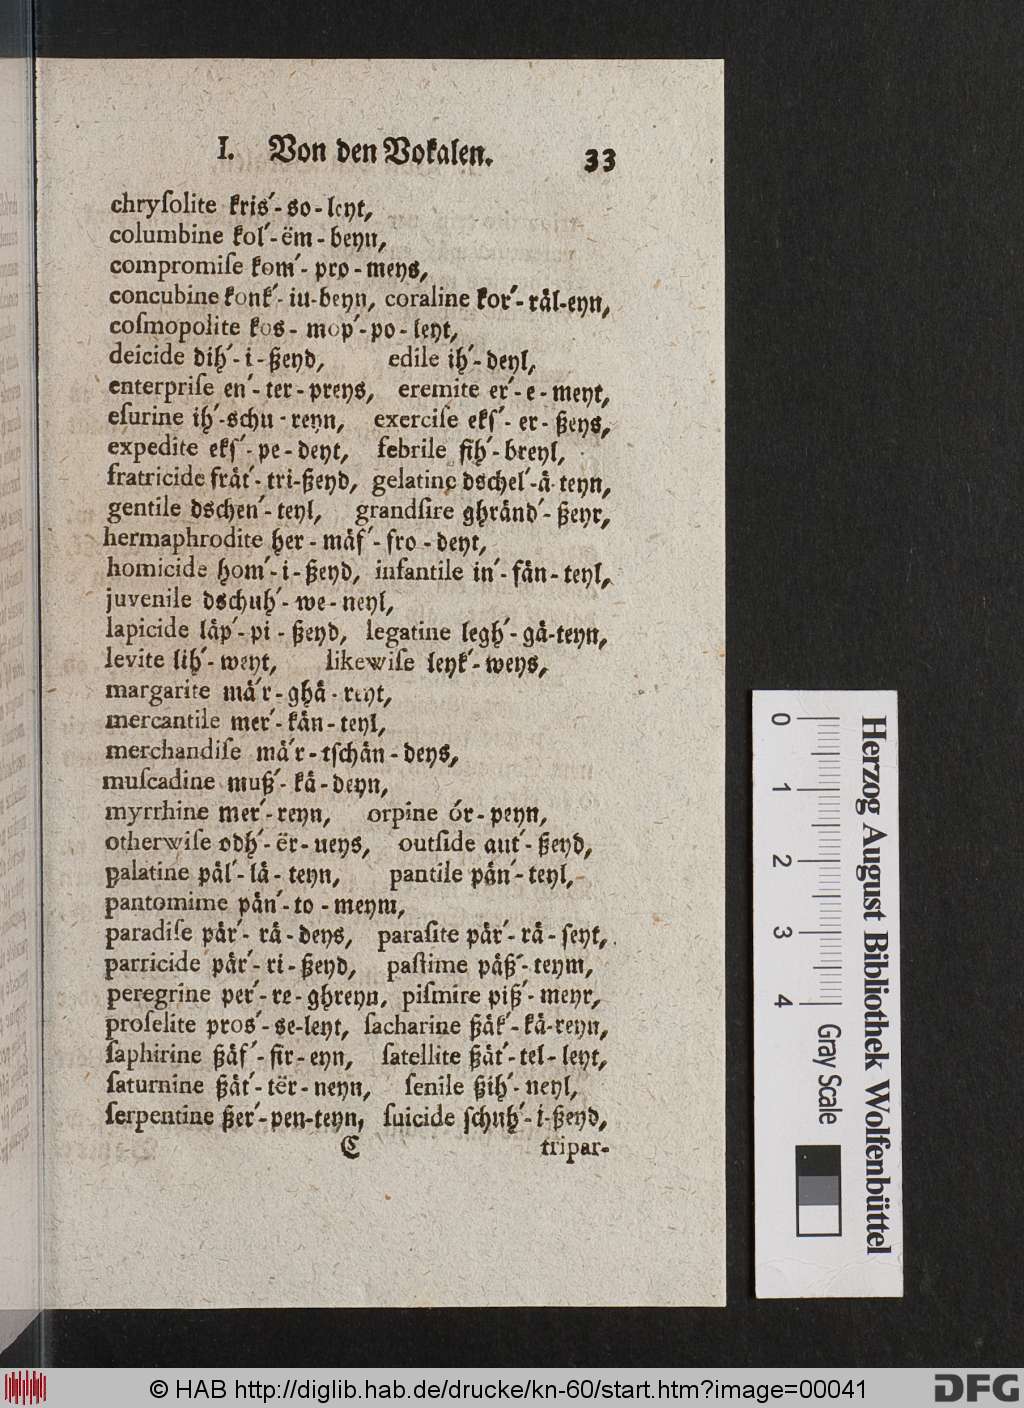 I. Von den Vokalen. 33
chryſolite kris´-so-leyt,
columbine kol´-ëm-beyn,
compromiſe kom´-pro-meys,
concubine konk´-iu-beyn, coraline kor´-rål-eyn,
coſmopolite kos-mop´-po-leyt,
deicide dih´-i-ßeyd, edile ih´-deyl,
enterpriſe en´-ter-preys, eremite er´-e-meyt,
eſurine ih´-schu-reyn, exerciſe ekſ´-er-ßeys,
expedite ekſ´-pe-deyt, febrile fih´-breyl,
fratricide fråt´-tri-ßeyd, gelatine dschel´-å-teyn,
gentile dschen´-teyl, grandſire ghrånd´-ßeyr,
hermaphrodite her-måf´-fro-deyt,
homicide hom´-i-ßeyd, infantile in´-fån-teyl,
juvenile dschuh´-we-neyl,
lapicide låp´-pi-ßeyd, legatine legh´-gå-teyn,
levite lih´-weyt, likewiſe leyk´-weys,
margarite må´r-ghå-reyt,
mercantile mer´-kån-teyl,
merchandiſe må´r-tſchån-deys,
muſcadine muß´-kå-deyn,
myrrhine mer´-reyn, orpine ór-peyn,
otherwiſe odh´-ër-ueys, outſide aut´-ßeyd,
palatine pål´-lå-teyn, pantile pån´-teyl,
pantomime pån´-to-meym,
paradiſe pår´-rå-deys, paraſite pår´-rå-ſeyt,
parricide pår´-ri-ßeyd, paſtime påß´-teym,
peregrine per´-re-ghreyn, piſmire piß´-meyr,
proſelite pros´-se-leyt, ſacharine ßåk´-kå-reyn,
ſaphirine ßåf´-fir-eyn, ſatellite ßåt´-tel-leyt,
ſaturnine ßåt´-tër-neyn, ſenile ßih´-neyl,
ſerpentine ßer´-pen-teyn, ſuicide ſchuh´-i-ßeyd,
C tripar-
0 1 2 3 4 Gray Scale
Herzog August Bibliothek Wolfenbüttel
© HAB http://diglib.hab.de/drucke/kn-60/start.htm?image=00041 DFG